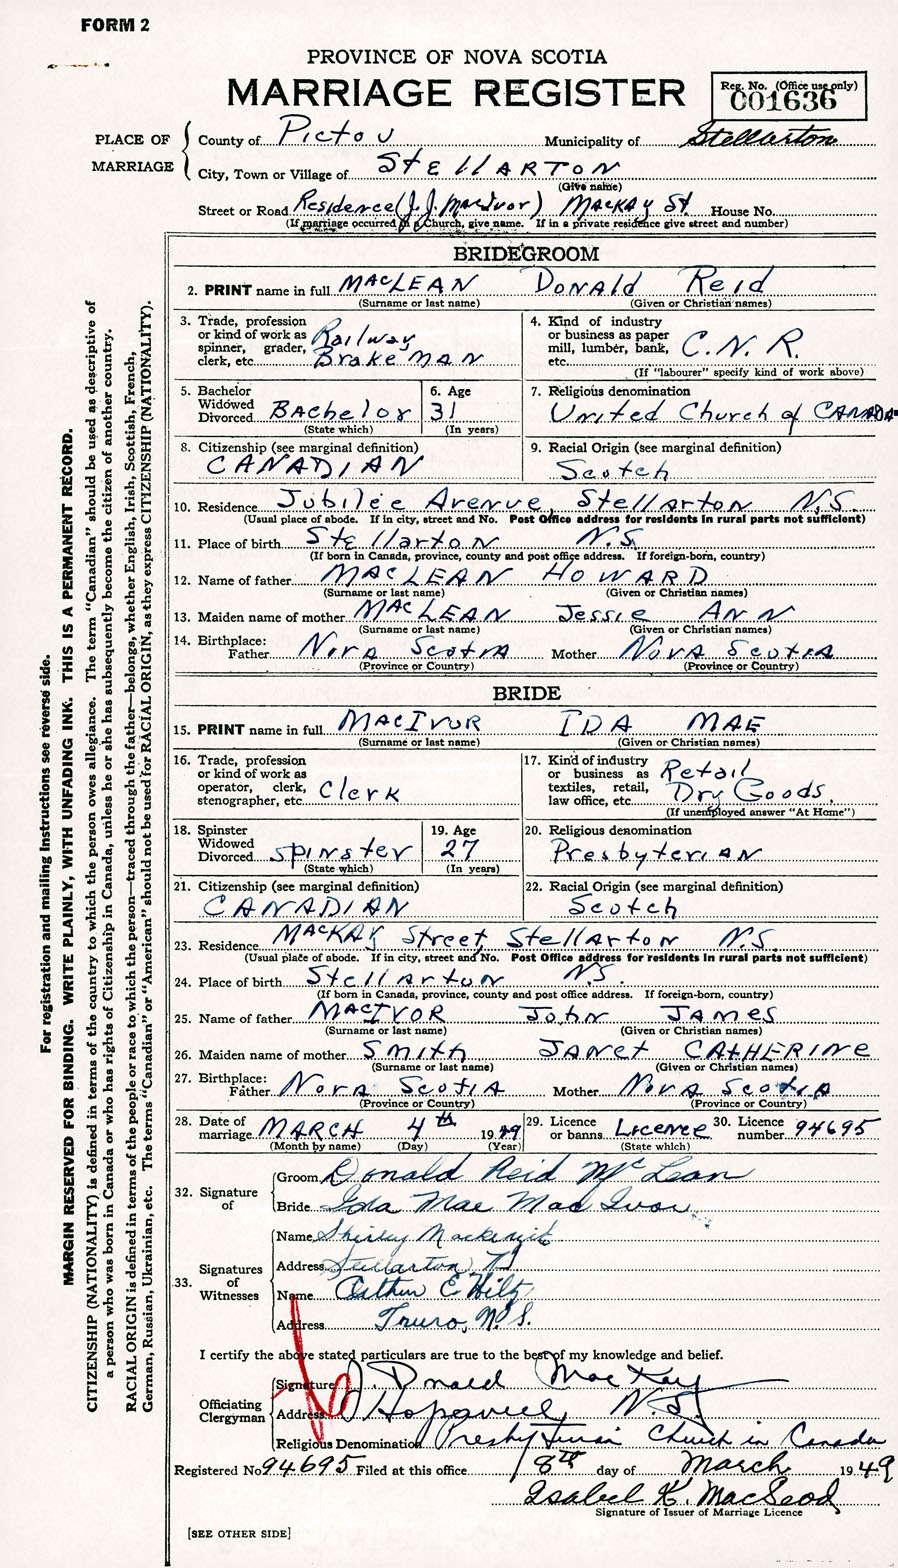 FORM 2
PROVINCE OF NOVA SCOTIA
MARRIAGE REGISTER
Reg. No. (Office use only)
001636
PLACE OF MARRIAGE
County of Pictou Municipality of Stellarton
City, Town or Village of Stellarton
(Give name)
Street or Road Residence (J.J. MacIvor) MacKay St House No.
(If marriage occurred in a Church, give name. If in a private residence give street and number)
BRIDEGROOM
2. PRINT name in full MacLEAN Donald Reid
(Surname or last name) (Given or Christian names)
3. Trade, profession or kind of work as spinner, grader, clerk, etc. Railway Brakeman
4. Kind of industry or business as paper mill, lumber, bank, etc. C.N.R.
(If "labourer" specify kind of work above)
5. Bachelor Widowed Divorced Bachelor
(State which)
6. Age 31
(In years)
7. Religious denomination
United Church of CANADA
8. Citizenship (see marginal definition)
CANADIAN
9. Racial Origin (see marginal definition)
Scotch
10. Residence Jubilee Avenue, Stellarton N.S.
(Usual place of abode. If in city, street and No. Post Office address for residents in rural parts not sufficient)
11. Place of birth Stellarton N.S.
(If born in Canada, province, county and post office address. If foreign-born, country)
12. Name of father MacLEAN HOWARD
(Surname or last name) (Given or Christian names)
13. Maiden name of mother MacLEAN Jessie ANN
(Surname or last name) (Given or Christian names)
14. Birthplace:
Father Nova Scotia Mother Nova Scotia
(Province or Country) (Province or Country)
BRIDE
15. PRINT name in full MacIVOR IDA MAE
(Surname or last name) (Given or Christian names)
16. Trade, profession or kind of work as operator, clerk, stenographer, etc. Clerk
17. Kind of industry or business as textiles, retail, law office, etc. Retail Dry Goods.
(If unemployed answer "At Home")
18. Spinster Widowed Divorced spinster
(State which)
19. Age 27
(In years)
20. Religious denomination
Presbyterian
21. Citizenship (see marginal definition)
CANADIAN
22. Racial Origin (see marginal definition)
Scotch
23. Residence MacKAY Street, Stellarton N.S.
(Usual place of abode. If in city, street and No. Post Office address for residents in rural parts not sufficient)
24. Place of birth Stellarton N.S.
(If born in Canada, province, county and post office address. If foreign-born, country)
25. Name of father MacIVOR John JAMES
(Surname or last name) (Given or Christian names)
26. Maiden name of mother Smith JANET CATHERINE
(Surname or last name) (Given or Christian names)
27. Birthplace:
Father Nova Scotia Mother Nova Scotia
(Province or Country) (Province or Country)
28. Date of marriage MARCH 4th 1949
(Month by name) (Day) (Year)
29. Licence or banns Licence
(State which)
30. Licence number 94695
32. Signature of
Groom Donald Reid McLean
Bride Ida Mae MacIvor
33. Signatures of Witnesses
Name Shirley Mackenzie
Address Stellarton NS
Name Arthur E Hiltz
Address Truro, N.S.
I certify the above stated particulars are true to the best of my knowledge and belief.
Officiating Clergyman
Signature J. Donald MacKay
Address Hopewell, N.S.
Religious Denomination Presbyterian Church in Canada
Registered No. 94695 Filed at this office 8th day of March 1949
Isabel K. MacLeod
Signature of Issuer of Marriage Licence
[SEE OTHER SIDE]
For registration and mailing instructions see reverse side.
MARGIN RESERVED FOR BINDING. WRITE PLAINLY, WITH UNFADING INK. THIS IS A PERMANENT RECORD.
CITIZENSHIP (NATIONALITY) is defined in terms of the country to which the person owes allegiance. The term "Canadian" should be used as descriptive of
a person who was born in Canada or who has rights of Citizenship in Canada, unless he or she has subsequently become the citizen of another country.
RACIAL ORIGIN is defined in terms of the people or race to which the person—traced through the father—belongs, whether English, Irish, Scottish, French,
German, Russian, Ukrainian, etc. The terms "Canadian" or "American" should not be used for RACIAL ORIGIN, as they express CITIZENSHIP (NATIONALITY).